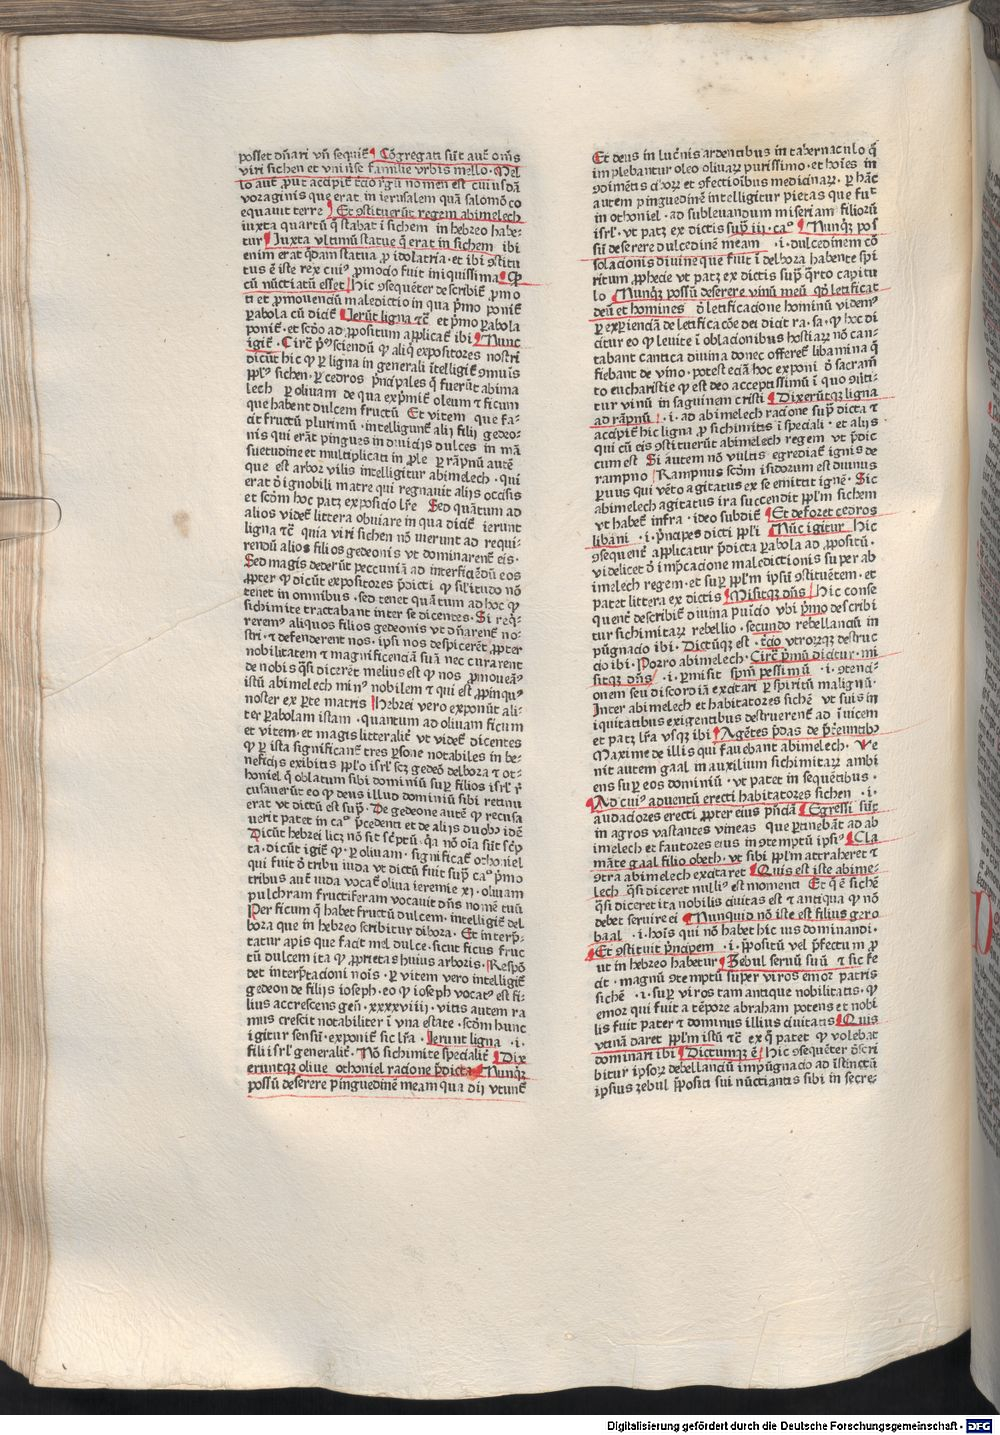 posset dn̄ari vn̄ sequit᷑ Cōgregati sūt aut̄ om̄s
viri sichen et vniūse familie vrbis mello · Mel
lo aut̄ p̱ut accipit᷑ t̄cio rgū nomen est cuiusdā
voraginis que erat in ierusalem quā salomō co
equauit terre Et ꝯstituerūt regem abimelech
iuxta quartū q̄ stabat ī sichem in hebreo habe-
tur Iuxta vltimū statue q̄ erat in sichem ibi
enim erat q̄dam statua p̱ idolatria · et ibi ꝯstitu
tus ē iste rex cui⁹ p̱mocio fuit iniquissima Qꝫ
cū nūctiatū esset Hic ꝯsequēter describit᷑ p̱mo
ti et p̱mouenciū maledictio in qua p̄mo ponit᷑
ꝑabola cū dicit᷑ Ierūt ligna ꞇc̄ et p̄mo ꝑabola
ponit᷑ · et scōo ad p̱positum applicat᷑ ibi Nunc
igit᷑ · Circ̄ p̄⁹ sciendū ꝙ aliq̄ expositores nostri
dicūt hic ꝙ ꝑ ligna in generali ītelligit᷑ ꝯmuīs
pp̄l⁹ sichen · ꝑ cedros p̄ncipales q̄ fuerūt abima
lech ꝑ oliuam de qua exp̄mit᷑ oleum ꞇ ficum
que habent dulcem fructū Et vitem que fa-
cit fructū plurimū · intelligunt᷑ alij filij gedeo-
nis qui erāt pingues in diuicijs dulces in mā
suetudine et multiplicati in p̱le ꝑ rāpnū autē
que est arbor vilis intelligitur abimelech · qui
erat d̄ ignobili matre qui regnauit alijs occisis
et scōm hoc patꝫ exposicio lr̄e Sed quātum ad
alios videt᷑ littera obuiare in qua dicit᷑ ierunt
ligna ꞇc̄ quia viri sichen nō iuerunt ad requi-
rendū alios filios gedeonis vt dominarent᷑ eis ·
Sed magis dederūt peccuniā ad interficiēdū eos
p̱pter ꝙ dicūt expositores p̄dicti ꝙ sil̄itudo nō
tenet in omnibus · sed tenet quātum ad hoc ꝙ
sichimite tractabant inter se dicentes · Si req̄-
rerem⁹ aliquos filios gedeonis vt dn̄arent᷑ no-
stri · ꞇ defenderent nos · ipsi nos despicerēt p̱pter
nobilitatem ꞇ magnificenciā suā nec curarent
de nobis q̄si dicerēt melius est ꝙ nos p̱moueam⁹
istū abimelech min⁹ nobilem ꞇ qui est p̱pinqu⁹
noster ex ꝑte matris Hebrei vero exponūt ali-
ter ꝑabolam istam · quantum ad oliuam ficum
et vitem · et magis litteralit᷑ vt videt᷑ dicentes
ꝙ ꝑ ista significant᷑ tres ꝑsone notabiles in be-
neficijs exibitis pp̄lo isrl̄ scꝫ gedeō delbora ꞇ ot-
honiel q̄ oblatum sibi dominiū sup̱ filios isrl̄ r̄
cusauerūt eo ꝙ deus illud dominiū sibi retinu
erat vt dictū est sup̱ · De gedeone autē ꝙ recusa
uerit patet in ca° p̄cedenti et de alijs duobꝫ idē
Dicūt hebrei licꝫ nō sit sc̄ptū · q̄a nō oīa sūt sc̄p
ta · dicūt igit᷑ ꝙ · ꝑ oliuam · significat᷑ othoniel
qui fuit d̄ tribu iuda vt dictū fuit sup̱ ca° p̄mo
tribus aut̄ iuda vocat᷑ oliua ieremie xj · oliuam
pulchram fructiferam vocauit dn̄s nomē tuū
Per ficum q̄ habet fructū dulcem · intelligit᷑ del
bora que in hebreo scribitur dibora · Et interp̄-
tatur apis que facit mel dulce · sicut ficus fruc
tū dulcem ita ꝙ p̱prietas huius arboris · Respō
det interp̄tacioni nois · ꝑ vitem vero intelligit᷑
gedeon de filijs ioseph · eo ꝙ ioseph vocat⁹ est fi-
lius accrescens gen̄ · xxxxviiij · vitis autem ra
mus crescit notabiliter ī vna estate · scōm hunc
igitur sensū · exponit᷑ sic lr̄a · Ierunt ligna · i ·
filij isrl̄ generalit᷑ · Nō sichimite specialit᷑ Dix
eruntqꝫ oliue othoniel racione p̄dicta Nunqꝫ
possū deserere pinguedinē meam qua dij vtunt᷑
Et deus in luc̄nis ardentibus in tabernaculo q̄
implebantur oleo oliuaꝝ purissimo · et hoīes in
ꝯdimētis ciboꝝ et ꝯfectioībus medicinaꝝ · ꝑ hāc
autem pinguedinē intelligitur pietas que fuit
in othoniel · ad subleuandum miseriam filiorū
isrl̄ · vt patꝫ ex dictis sup̱ iii · ca° Nunqꝫ pos
sū deserere dulcedinē meam · i · dulcedinem cō
solacionis diuine que fuit ī delbora habente spi
ritum p̱phecie vt patꝫ ex dictis sup̱ q̄rto capitu
lo Nunqꝫ possū deserere vinū meū qd̄ letificat
deū et homines d̄ letificacione hominū videm⁹
ꝑ exꝑienciā de letificacōe dei dicit ra · sa · ꝙ hoc di
citur eo ꝙ leuite ī oblationibus hostiaꝝ nō can-
tabant cantica diuina donec offeret᷑ libamina q̄
fiebant de vino · potest eciā hoc exponi d̄ sacram̄
to eucharistie ꝙ est deo acceptissimū ī quo ꝯūti-
tur vinū in saguinem cristi Dixerūtqꝫ ligna
ad rāpnū · i · ad abimelech racione sup̱ dicta ꞇ
accipit᷑ hic ligna p̱ sichimitis ī speciali · et alijs
qui cū eis ꝯstituerūt abimelech regem vt p̄dic
cum est Si autem nō vultis egrediat᷑ ignis de
rampno Rampnus scōm isidorum est duinus
ꝑuus qui vēto agitatus ex se emittit ignē · Sic
abimelech agitatus ira succendit pp̄lm sichem
vt habet᷑ infra · ideo subdit᷑ Et deforet cedros
libani · i · p̄ncipes dicti pp̄li Nūc igitur Hic
ꝯsequent᷑ applicatur p̄dicta ꝑabola ad p̱positū ·
videlicet d̄ imp̄cacione maledictionis super ab
imelech regem · et sup̱ pp̄lm ipsū ꝯstituētem · et
patet littera ex dictis Misitqꝫ dn̄s Hic conse
quent᷑ describit᷑ diuina puīcio vbi p̄mo describi
tur sichimitaꝝ rebellio · secundo rebellanciū in
pūgnacio ibi · Dictūqꝫ est · t̄cio vtrorūqꝫ destruc
cio ibi · Porro abimelech · Circ̄ p̄mū dicitur · mi
sitqꝫ dn̄s · i · ꝑmisit sp̄m pessimū · i · ꝯtenci-
onem seu discordiā excitari ꝑ spiritū malignū ·
Inter abimelech et habitatores sichē vt suis in
iquitatibus exigentibus destruerent᷑ ad īuicem
et patꝫ lr̄a vsqꝫ ibi Agētes p̄das de p̄t᷑euntibꝫ
Maxime de illis qui fauebant abimelech · Ve
nit autem gaal in auxilium sichimitaꝝ ambi
ens sup̱ eos dominiū · vt patet in sequētibus ·
Ad cui⁹ aduentū erecti habitatores sichen · i ·
audaciores erecti p̱pter eius pn̄ciā Egressi sūt
in agros vastantes vineas que ꝑtinebāt ad ab
imelech et fautores eius in ꝯtemptū ipsi⁹ Cla
māte gaal filio obeth · vt sibi pp̄lm attraheret ꞇ
ꝯtra abimelech excitaret Quis est iste abime-
lech q̄si diceret nulli⁹ est momenti Et q̄ ē sichē
q̄si diceret ita nobilis ciuitas est ꞇ antiqua ꝙ nō
debet seruire ei Nunquid nō iste est filius gero
baal · i · hoīs qui nō habet hic ius dominandi ·
Et ꝯstituit p̄ncipem · i · p̄positū vel p̄fectum p̱
ut in hebreo habetur Zebul seruū suū ꞇ sic fe
cit · magnū ꝯtemptū super viros emor patris
sichē · i · sup̱ viros tam antique nobilitatis · ꝙ
emor qui fuit a tēpore abraham potens et nobi
lis fuit pater ꞇ dominus illius ciuitatis Quis
vtinā daret pp̄lm istū ꞇc̄ ex q̄ patet ꝙ volebat
dominari ibi Dictumqꝫ ē Hic ꝯsequēter d̄scri
bitur ipsoꝝ debellanciū impūgnacio ad īstinctū
ipsius zebul p̄positi sui nūctiantis sibi in secre-
Digitalisierung gefördert durch die Deutsche Forschungsgemeinschaft - DFG